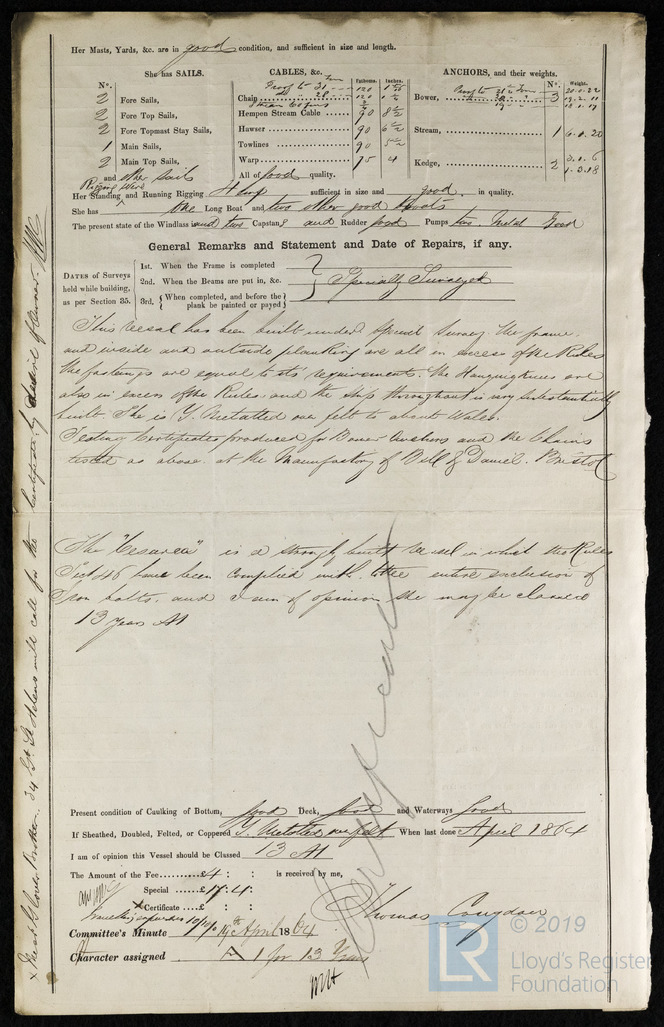 Her Masts, Yards, &c. are in good condition, and sufficient in size and length.
She has SAILS.
CABLES, &c.
ANCHORS, and their weights.
N°.
Fathoms.
Inches.
N°.
Weight.
2 Fore Sails,
2 Fore Top Sails,
2 Fore Topmast Stay Sails,
1 Main Sails,
2 Main Top Sails,
and other sails
Proof to 31
Chain 120
120
Hempen Stream Cable 90 8½
Hawser 90 6½
Towlines 90 5½
Warp 75 4
All of Good quality.
Bower, 3
Stream, 1 6.1.20
Kedge, 2 3.1.6
1.3.18
Her Standing Rigging Wire and Running Rigging Hemp sufficient in size and good in quality.
She has One Long Boat and two other good Boats
The present state of the Windlass and two Capstans and Rudder good Pumps two Metal Good
General Remarks and Statement and Date of Repairs, if any.
DATES of Surveys held while building, as per Section 35.
1st. When the Frame is completed
2nd. When the Beams are put in, &c.
3rd. When completed, and before the plank be painted or payed
Specially Surveyed
This Vessel has been built under Special Survey. The frame,
and inside and outside planking are all in excess of the Rules
the fastenings are equal to its requirements. The Hanging knees are
also in excess of the Rules and the ship throughout is very substantially
built. She is Y. Metalled over felt to about Wales.
Testing Certificates produced for Bower Anchors and the Chains
tested as above at the Manufactory of Bell & Daniel. Bristol
The "Cesarea" is a strongly built Vessel in which the Rules
Sect 46 have been complied with, to the entire exclusion of
Iron bolts, and I am of opinion she may be classed
13 Years A1
Present condition of Caulking of Bottom, good Deck, good and Waterways Good
If Sheathed, Doubled, Felted, or Coppered Y. Metalled over felt When last done April 1864
I am of opinion this Vessel should be Classed 13 A1
The Amount of the Fee £4 : : is received by me,
Special £17 : 4 :
Certificate £ : :
Travelling expenses 10/10/0
Thomas Congdon
Committee's Minute 19th April 1864
Character assigned A 1 for 13 Years
34 Gt St Helens will call for the Certificate by desire of Owner.
© 2019
LR
Lloyd's Register
Foundation